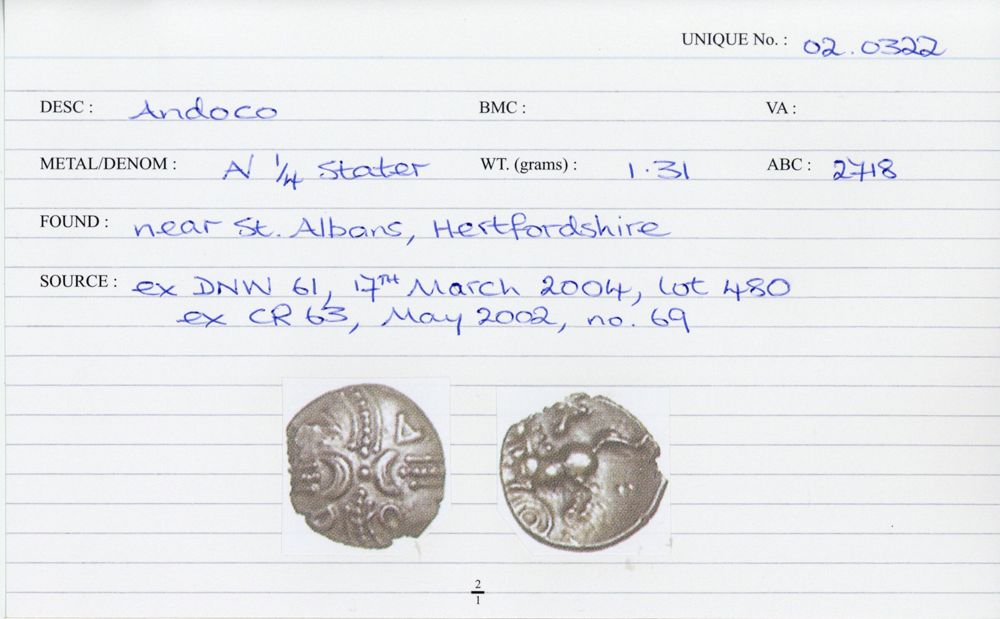 UNIQUE No. : 02.0322
DESC : Andoco BMC : VA :
METAL/DENOM : AV 1/4 Stater WT. (grams) : 1.31 ABC : 2718
FOUND : near St. Albans, Hertfordshire
SOURCE : ex DNW 61, 17TH March 2004, lot 480
ex CR 63, May 2002, no. 69
2
1